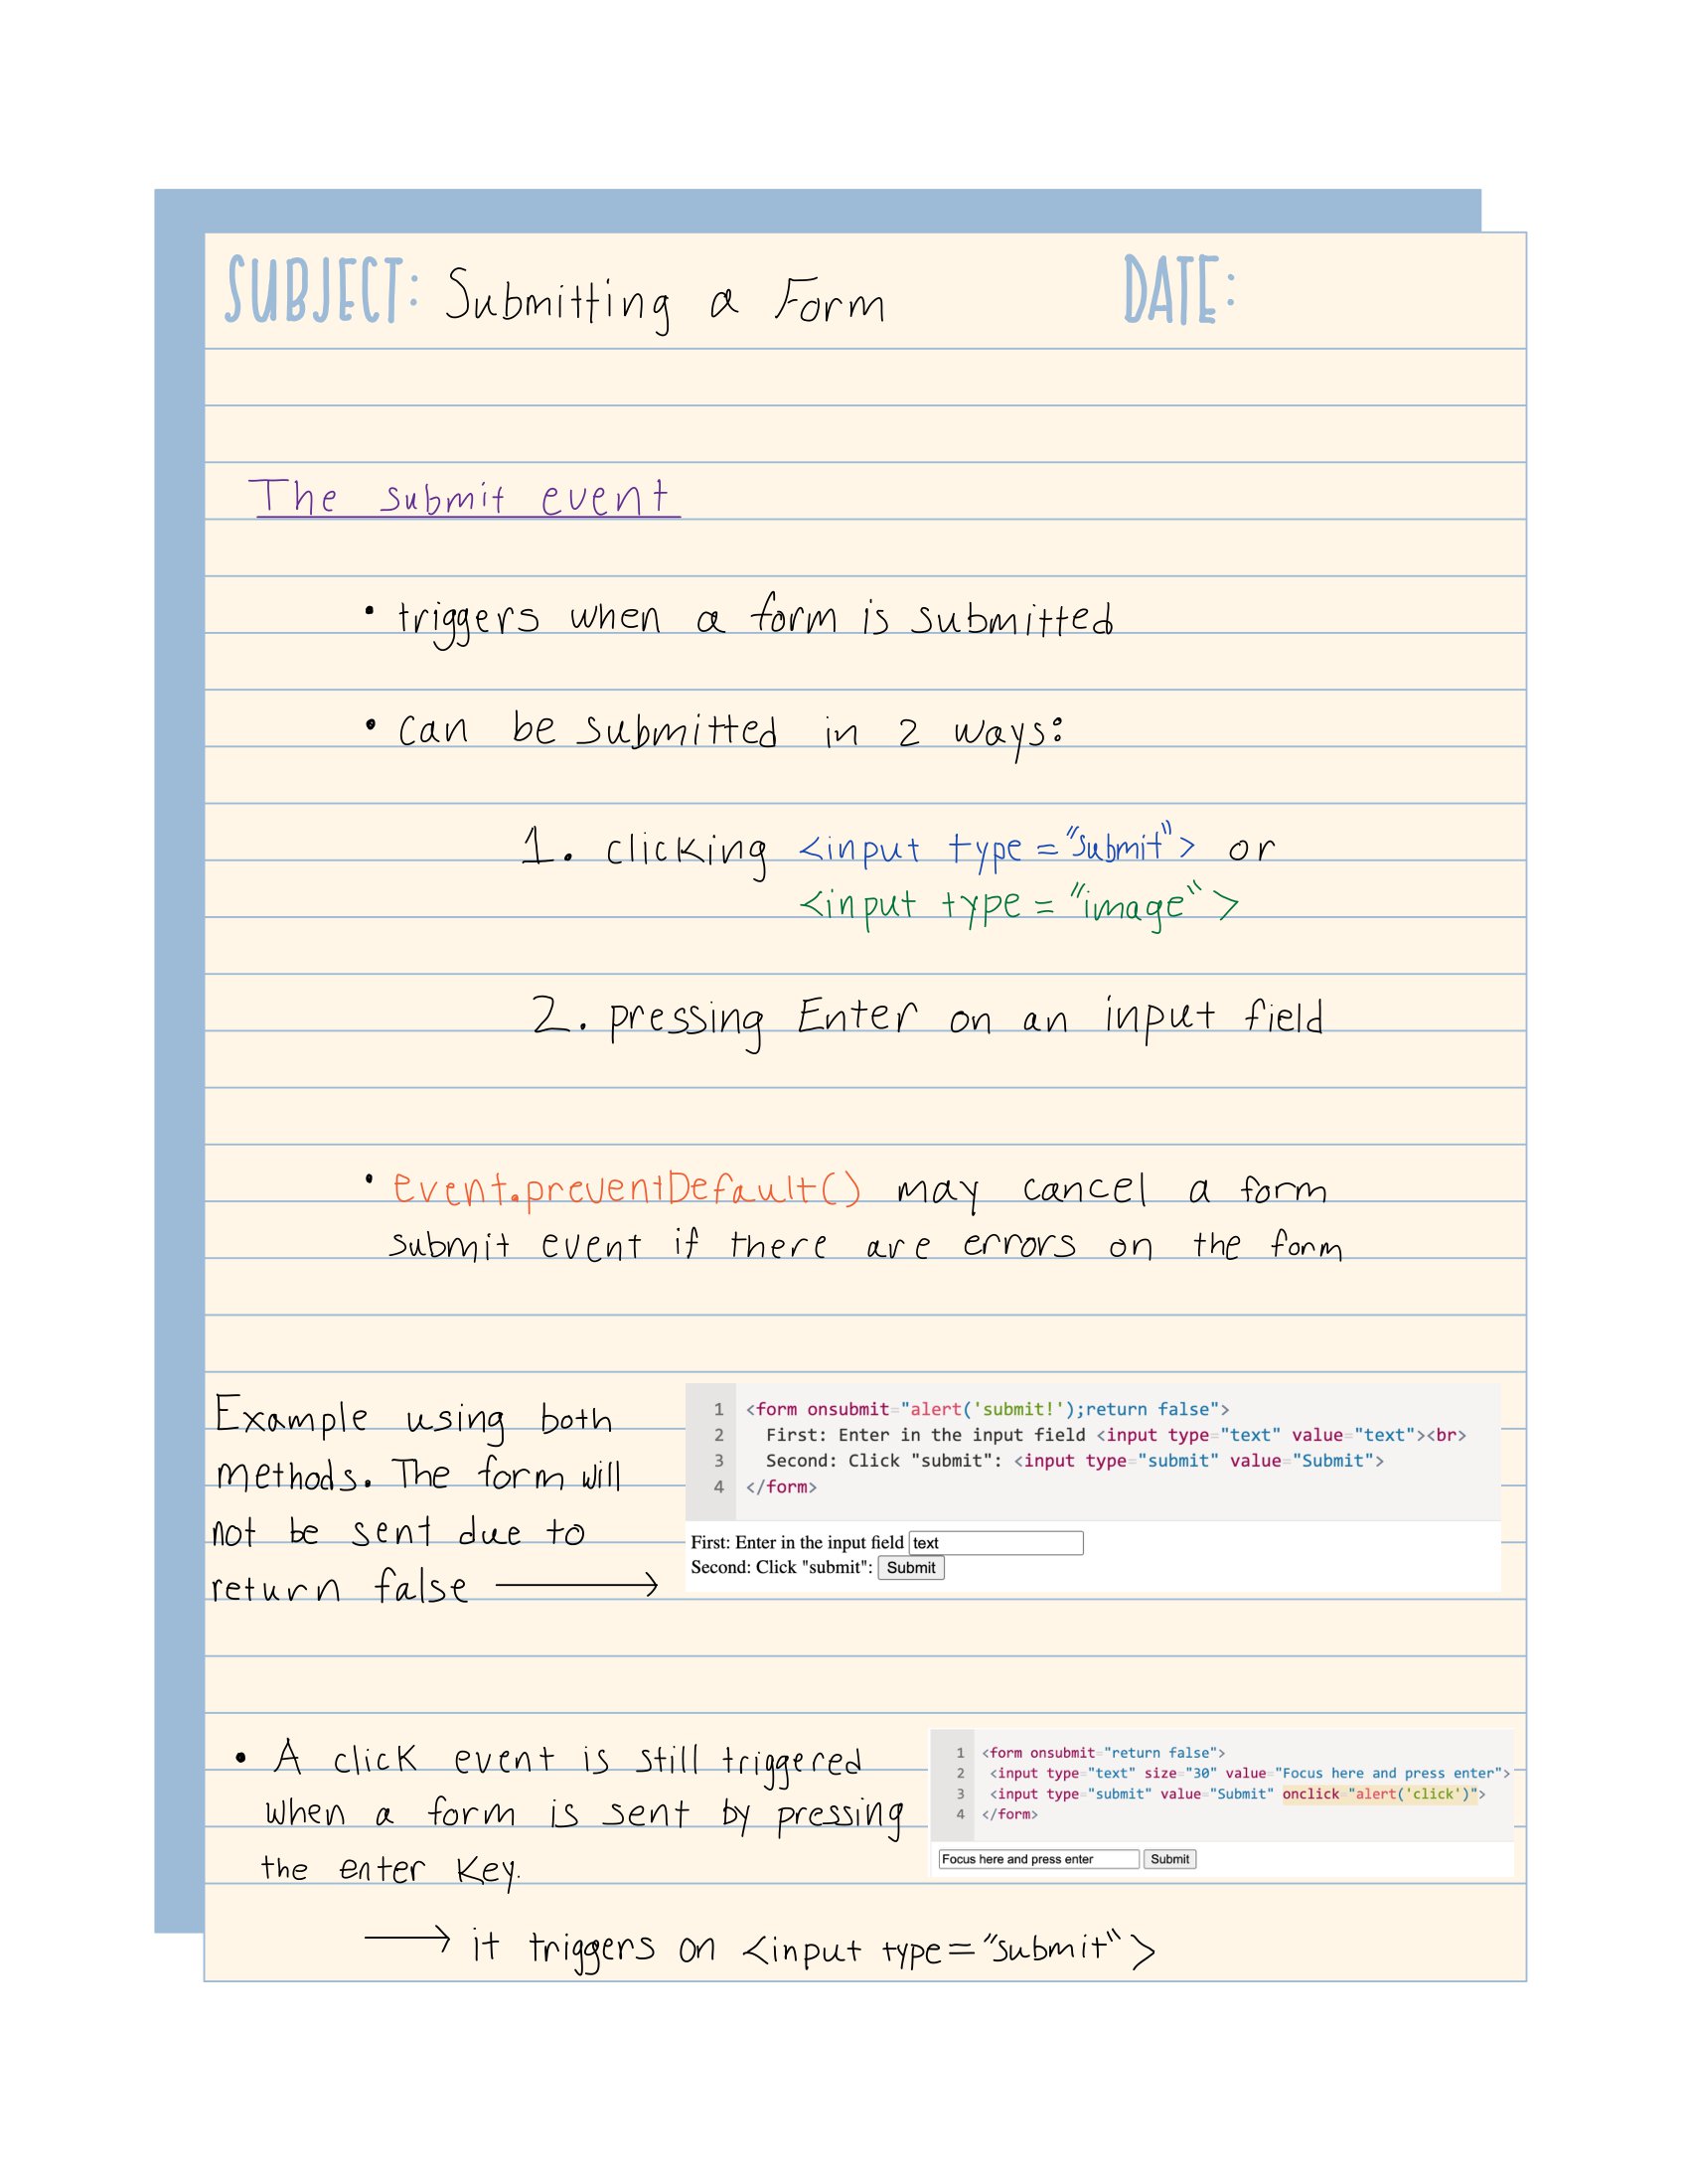 SUBJECT: Submitting a Form DATE:
The submit event
• triggers when a form is submitted
• can be submitted in 2 ways:
1. clicking <input type="submit"> or
<input type="image">
2. pressing Enter on an input field
• event.preventDefault() may cancel a form
submit event if there are errors on the form
Example using both
methods. The form will
not be sent due to
return false →
1 <form onsubmit="alert('submit!');return false">
2 First: Enter in the input field <input type="text" value="text"><br>
3 Second: Click "submit": <input type="submit" value="Submit">
4 </form>
First: Enter in the input field text
Second: Click "submit": Submit
• A click event is still triggered
when a form is sent by pressing
the enter key.
1 <form onsubmit="return false">
2 <input type="text" size="30" value="Focus here and press enter">
3 <input type="submit" value="Submit" onclick="alert('click')">
4 </form>
Focus here and press enter Submit
→ it triggers on <input type="submit">